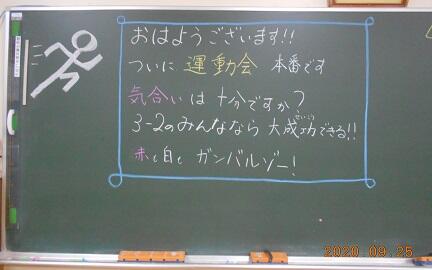 おはようございます!!
ついに 運動会 本番です
気合いは十分ですか?
3-2のみんななら 大成功できる!!
せいこう
赤も白も ガンバルゾー!
2020.09.25